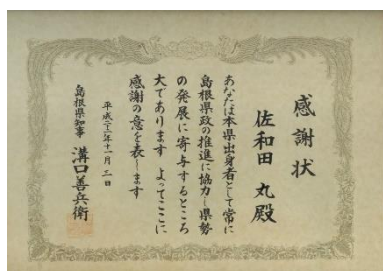 感謝状
佐和田 丸殿
あなたは本県出身者として常に
島根県政の推進に協力し県勢
の発展に寄与するところ
大であります よってここに
感謝の意を表します
平成二三年十一月三日
島根県知事 溝口善兵衛